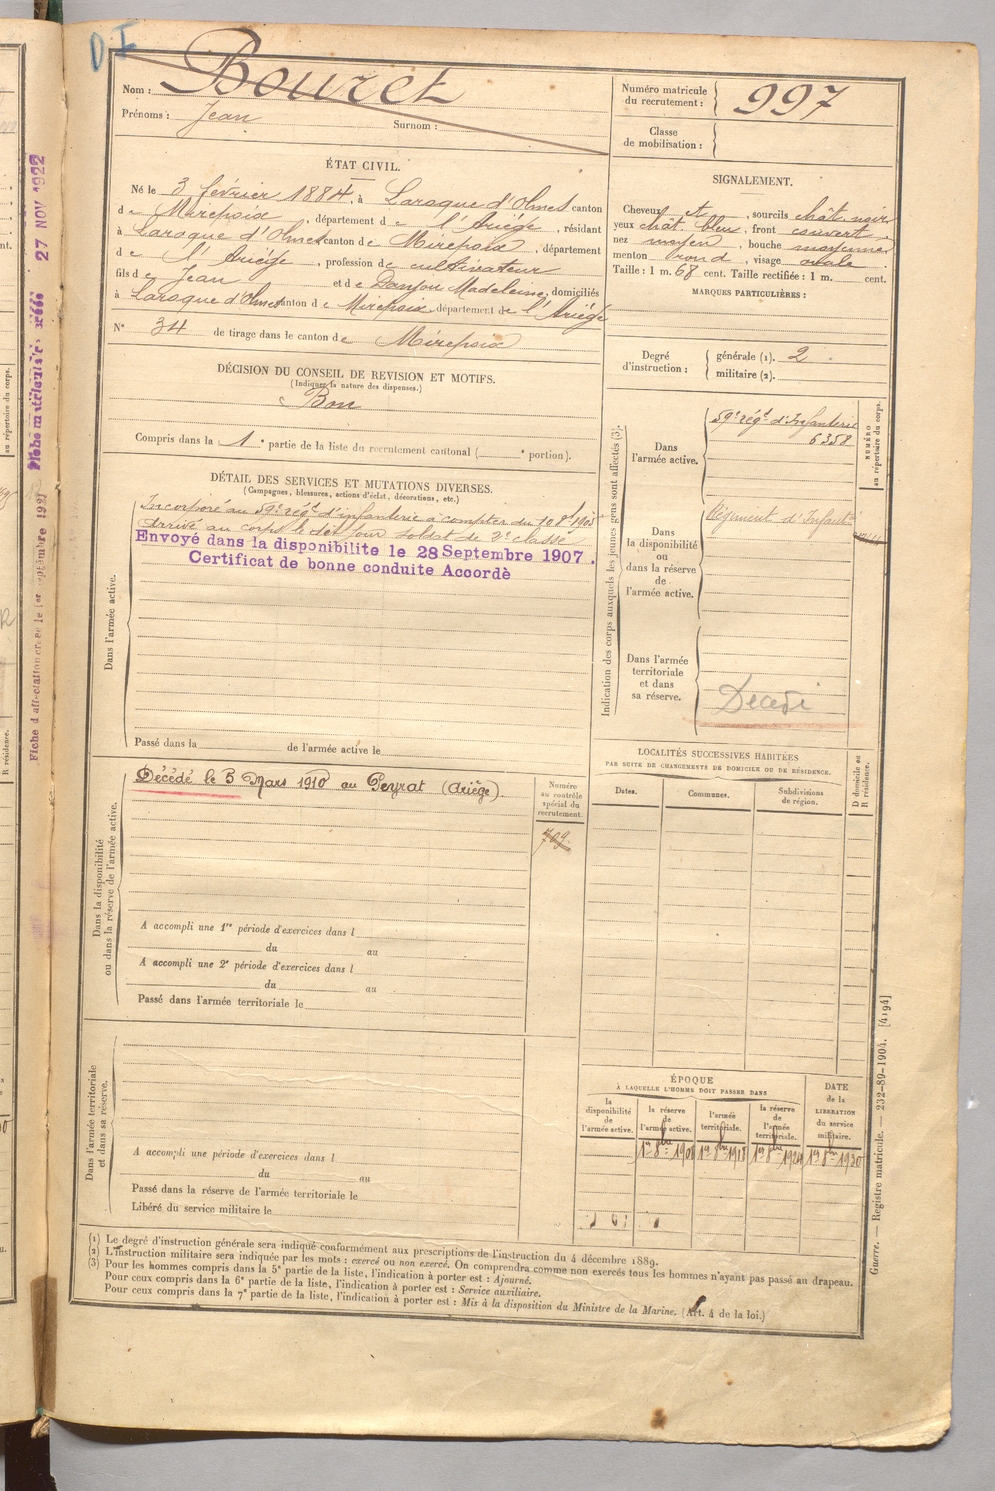 D I
Nom : Bouret
Prénoms : Jean Surnom :
Numéro matricule
du recrutement : 997
Classe
de mobilisation :
ÉTAT CIVIL.
Né le 3 février 1884, à Laroque d'Olmes canton
de Mirepoix, département de l'Ariège, résidant
à Laroque d'Olmes canton de Mirepoix, département
de l'Ariège, profession de cultivateur
fils de Jean et de Danjou Madeleine, domiciliés
à Laroque d'Olmes canton de Mirepoix département de l'Ariège
N° 34 de tirage dans le canton de Mirepoix
SIGNALEMENT.
Cheveux , sourcils chât. noir
yeux chât. bleu, front couvert,
nez moyen, bouche moyenne
menton rond, visage ovale.
Taille : 1 m. 68 cent. Taille rectifiée : 1 m. cent.
MARQUES PARTICULIÈRES :
Degré
d'instruction :
générale (1). 2.
militaire (2).
DÉCISION DU CONSEIL DE REVISION ET MOTIFS.
(Indiquer la nature des dispenses.)
Bon
Compris dans la 1e partie de la liste du recrutement cantonal ( e portion).
DÉTAIL DES SERVICES ET MUTATIONS DIVERSES.
(Campagnes, blessures, actions d'éclat, décorations, etc.)
Dans l'armée active.
Incorporé au 59e rég.t d'infanterie à compter du 10 8bre 1905
Arrivé au corps le dit jour soldat de 2e classe
Envoyé dans la disponibilite le 28 Septembre 1907.
Certificat de bonne conduite Accordè
Passé dans la de l'armée active le
Indication des corps auxquels les jeunes gens sont affectés (3).
Dans
l'armée active.
59e rég.t d'Infanterie
6358
NUMÉRO
au répertoire du corps.
Dans
la disponibilité
ou
dans la réserve
de
l'armée active.
Régiment d'Infant.
Dans l'armée
territoriale
et dans
sa réserve.
Décédé
Dans la disponibilité
ou dans la réserve de l'armée active.
Décédé le 3 Mars 1910 au Peyrat (Ariège).
Numéro
au contrôle
spécial du
recrutement.
709
A accompli une 1re période d'exercices dans l
du au
A accompli une 2e période d'exercices dans l
du au
Passé dans l'armée territoriale le
LOCALITÉS SUCCESSIVES HABITÉES
PAR SUITE DE CHANGEMENTS DE DOMICILE OU DE RÉSIDENCE.
Dates. Communes. Subdivisions
de région.
D domicile ou
R résidence.
Dans l'armée territoriale
et dans sa réserve.
A accompli une période d'exercices dans l
du au
Passé dans la réserve de l'armée territoriale le
Libéré du service militaire le
ÉPOQUE
À LAQUELLE L'HOMME DOIT PASSER DANS
DATE
de la
LIBÉRATION
du service
militaire.
la
disponibilité
de
l'armée active.
la réserve
de
l'armée active.
l'armée
territoriale.
la réserve
de
l'armée
territoriale.
1er 8bre 1908 1er 8bre 1918 1er 8bre 1924 1er 8bre 1930
(1) Le degré d'instruction générale sera indiqué conformément aux prescriptions de l'instruction du 4 décembre 1889.
(2) L'instruction militaire sera indiquée par les mots : exercé ou non exercé. On comprendra comme non exercés tous les hommes n'ayant pas passé au drapeau.
(3) Pour les hommes compris dans la 5e partie de la liste, l'indication à porter est : Ajourné.
Pour ceux compris dans la 6e partie de la liste, l'indication à porter est : Service auxiliaire.
Pour ceux compris dans la 7e partie de la liste, l'indication à porter est : Mis à la disposition du Ministre de la Marine. (Art. 4 de la loi.)
Guerre. — Registre matricule. — 232-89-1904. [4194]
27 NOV 1922
au répertoire du corps.
R résidence.